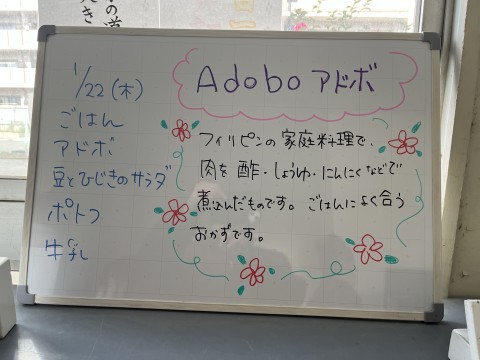 1/22(木)
ごはん
アドボ
豆とひじきのサラダ
ポトフ
牛乳
Adobo アドボ
フィリピンの家庭料理で、
肉を酢・しょうゆ・にんにくなどで
煮込んだものです。ごはんによく合う
おかずです。